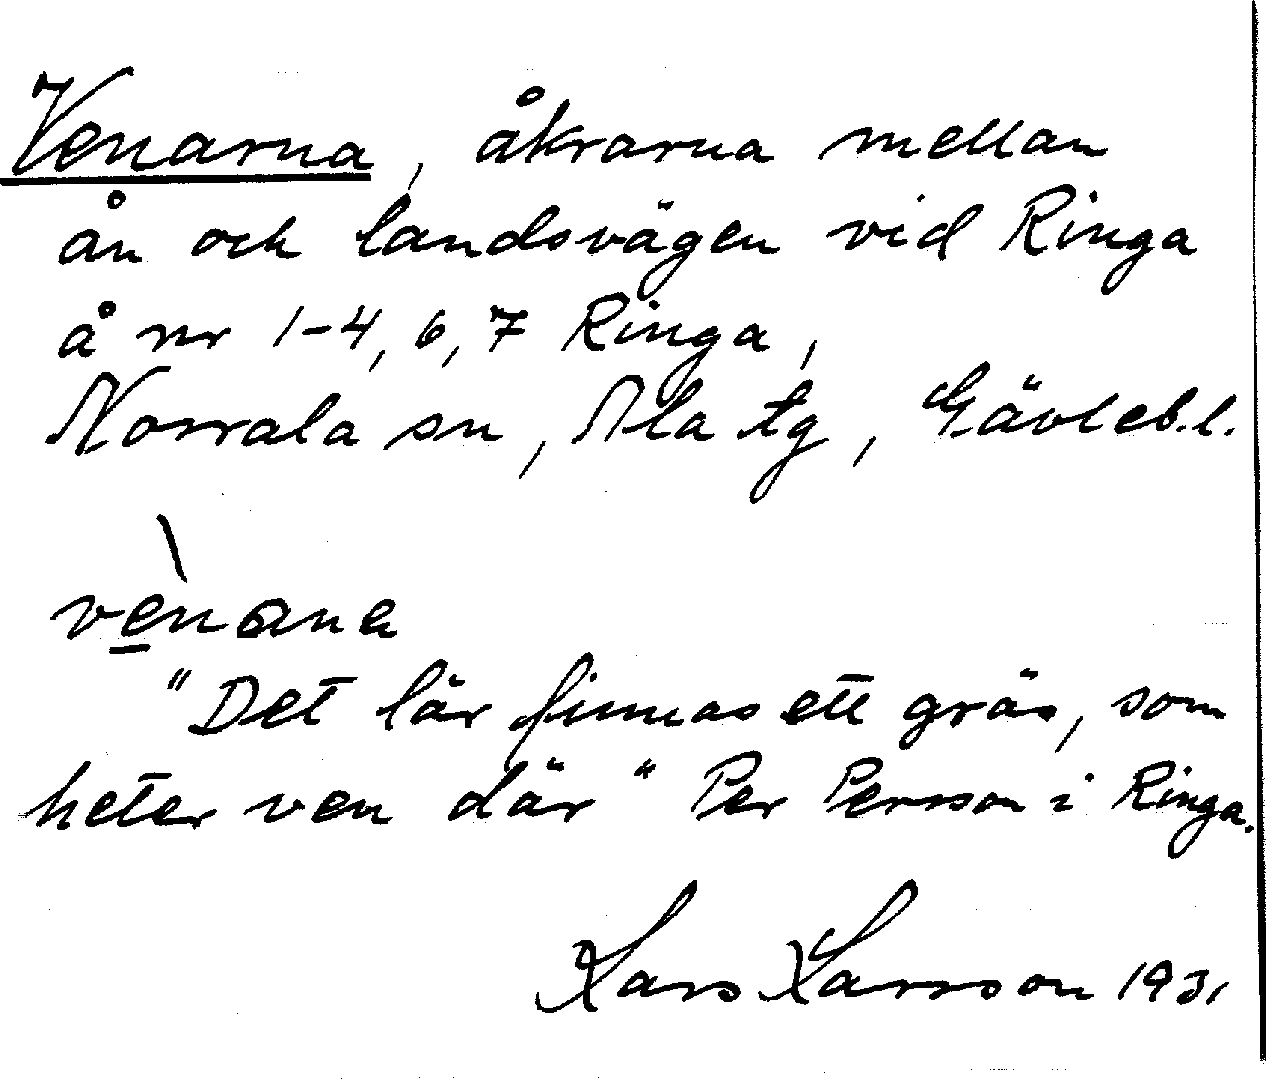 Venarna, åkrarna mellan
ån och landsvägen vid Ringa
å nr 1-4, 6, 7 Ringa,
Norrala sn, Nla tg, Gävleb.l.
vènana
"Det lär finnas ett gräs, som
heter ven där" Per Persson i Ringa.
Lars Larsson 1931